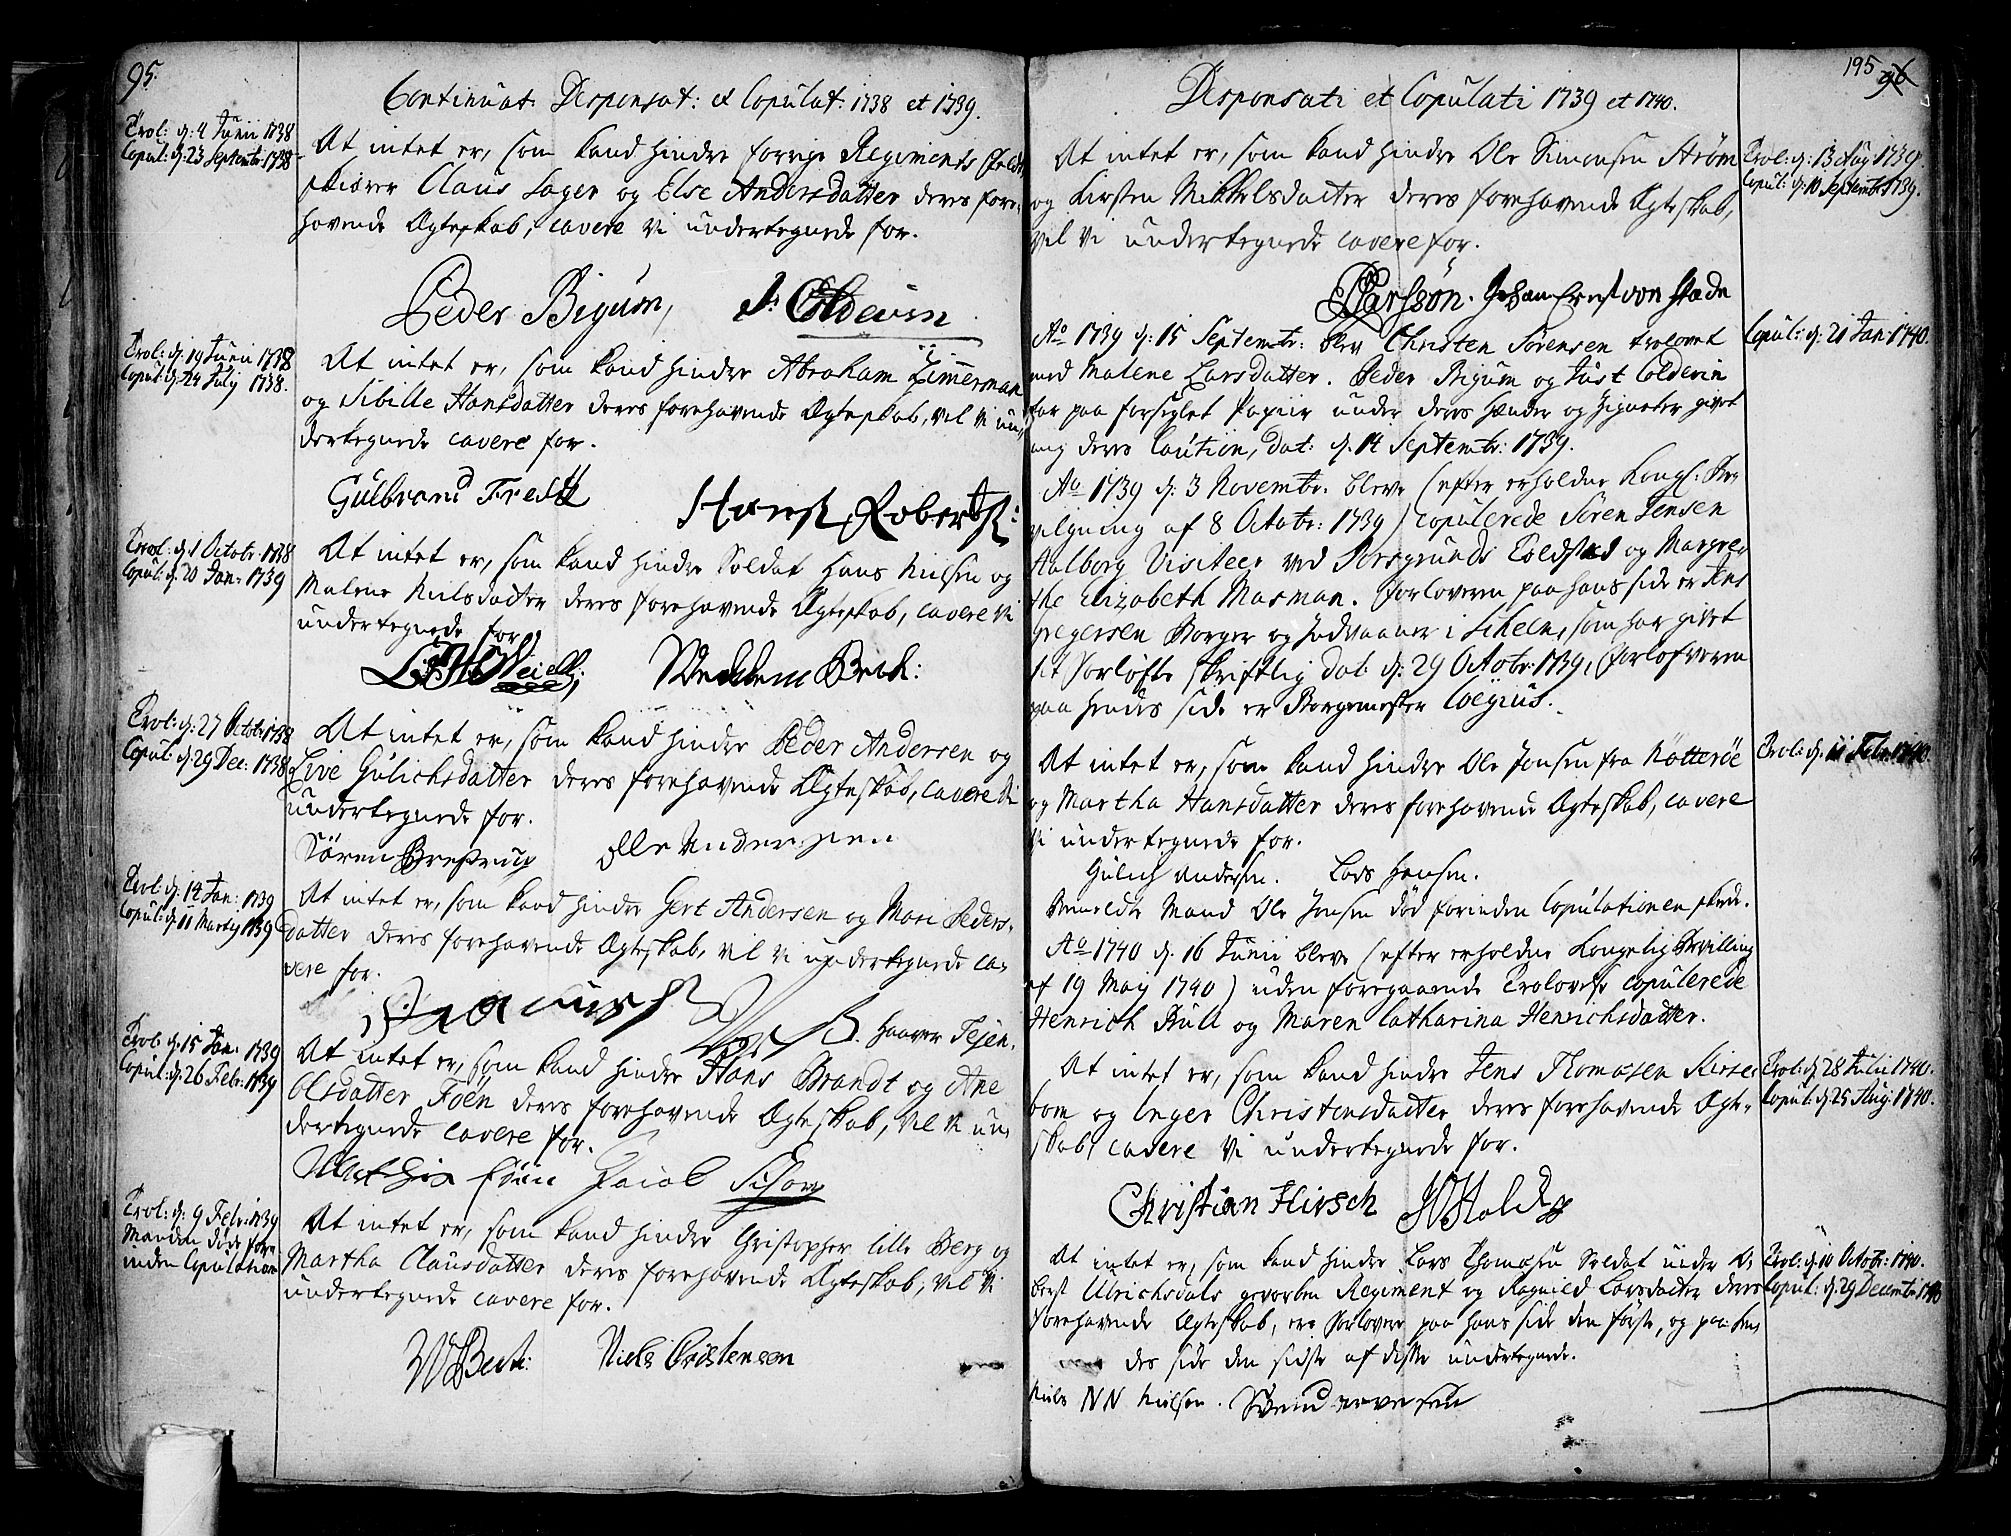 95.
Continuat. Desponsat: et Copulat: 1738 et 1739.
Trol: d: 4 Junii 1738
Copul: d: 23 Septembr: 1738
At intet er, som kand hindre forrige Regiments
skiærer Claus Lager og Else Andersdatter deres fore-
havende Ægteskab, cavere vi undertegnede for.
Peder Bigum, J: Colderin
Trol: d: 19 Junii 1738
Copul: d: 24 July 1738.
At intet er, som kand hindre Abraham Zimerman
og Sibille Hansdatter deres forehavende Ægteskab, vil vi un-
dertegnede cavere for.
Gulbrand Hans Roberts:
Trol: d: 1 Octobr: 1738
Copul: d: 20 Jan: 1739
At intet er, som kand hindre Soldat Hans Nielsen og
Malene Nielsdatter deres forehavende Ægteskab, cavere vi
undertegnede for
Beck:
Trol: d: 27 Octobr: 1738
Copul: d: 29 Dec: 1738
At intet er, som kand hindre Peder Andersen og
Live Gulichsdatter deres forehavende Ægteskab, cavere vi
undertegnede for.
Sören Brestrup Olle Andersen
Trol: d: 14 Jan: 1739
Copul: d: 11 Martij 1739
At intet er, som kand hindre Gert Andersen og Mari Peders-
datter deres forehavende Ægteskab, vil vi undertegnede ca-
vere for.
Haaver Tejen.
Trol: d: 15 Jan: 1739
Copul: d: 26 Febr: 1739
At intet er, som kand hindre Hans Brandt og Ane
Olsdatter Föen deres forehavende Ægteskab, vil vi un-
dertegnede cavere for.
Mathis Föen Jacob
Trol: d: 9 Febr: 1739
Manden döde for-
inden Copulation
At intet er, som kand hindre Christopher lille Berg og
Martha Clausdatter deres forehavende Ægteskab, vil vi
undertegnede cavere for.
Niels Cristensen
195 96
Desponsati et Copulati 1739 et 1740.
Trol: d: 13 Aug: 1739.
Copul: d: 10 Septembr: 1739.
At intet er, som kand hindre Ole Simonsen Ström
og Kirsten Mikkelsdatter deres forehavende Ægteskab,
vil vi undertegnede cavere for.
Johan Ernst von Stade
Copul: d: 21 Jan: 1740.
Ao 1739 d: 15 Septembr: blev Christen Sörensen trolovet
med Malene Larsdatter. Peder Bigum og Just Colderin
har paa forseglet Papiir under deres Hænder og Zigneter givet
mig deres Caution, dat: d: 14 Septembr: 1739.
Ao 1739 d: 3 Novembr: bleve (efter erholdne Kongl: Be-
vilgning af 8 Octobr: 1739) copulerede Sören Jensen
Aalborg Visiteer ved Porsgrunds Toldsted og Margre-
the Elizabeth Masman. Forloveren paa hans side er Jens
Gregersen Borger og Indvaaner i Skeen, som har givet
sit Forlöfte skriftlig dat: d: 29 Octobr: 1739, Forlofveren
paa hendes side er Borgemester Coëgius.
Trol: d: 11 Febr: 1740.
At intet er, som kand hindre Ole Jonsen fra Nötteröe
og Martha Hansdatter deres forehavende Ægteskab, cavere
vi undertegnede for.
Gulich Andersen. Lars Hansen.
Bemeldte Mand Ole Jonsen död forinden Copulationen skede.
Ao 1740 d: 16 Junii bleve (efter erholdne Kongelig Bevilling
af 19 May 1740) uden foregaaende Trolovelse copulerede
Henrich Bull og Maren Catharina Henrichsdatter.
Trol: d: 28 Julii 1740.
Copul: d: 25 Aug: 1740.
At intet er, som kand hindre Jens Thomasen Kirse-
bom og Inger Christensdatter deres forehavende Ægte-
skab, cavere vi undertegnede for.
Christian Hirsch
Trol: d: 10 Octobr: 1740.
Copul: d: 29 Decembr: 1740
At intet er, som kand hindre Lars Thomasen Soldat under O-
berst Ulrichsdals gevorben Regiment og Ragnild Larsdatter deres
forehavende Ægteskab, ere Forlover paa hans side den förste, og paa hen-
des side den sidste af disse undertegnede.
Niels NN Nielsen.